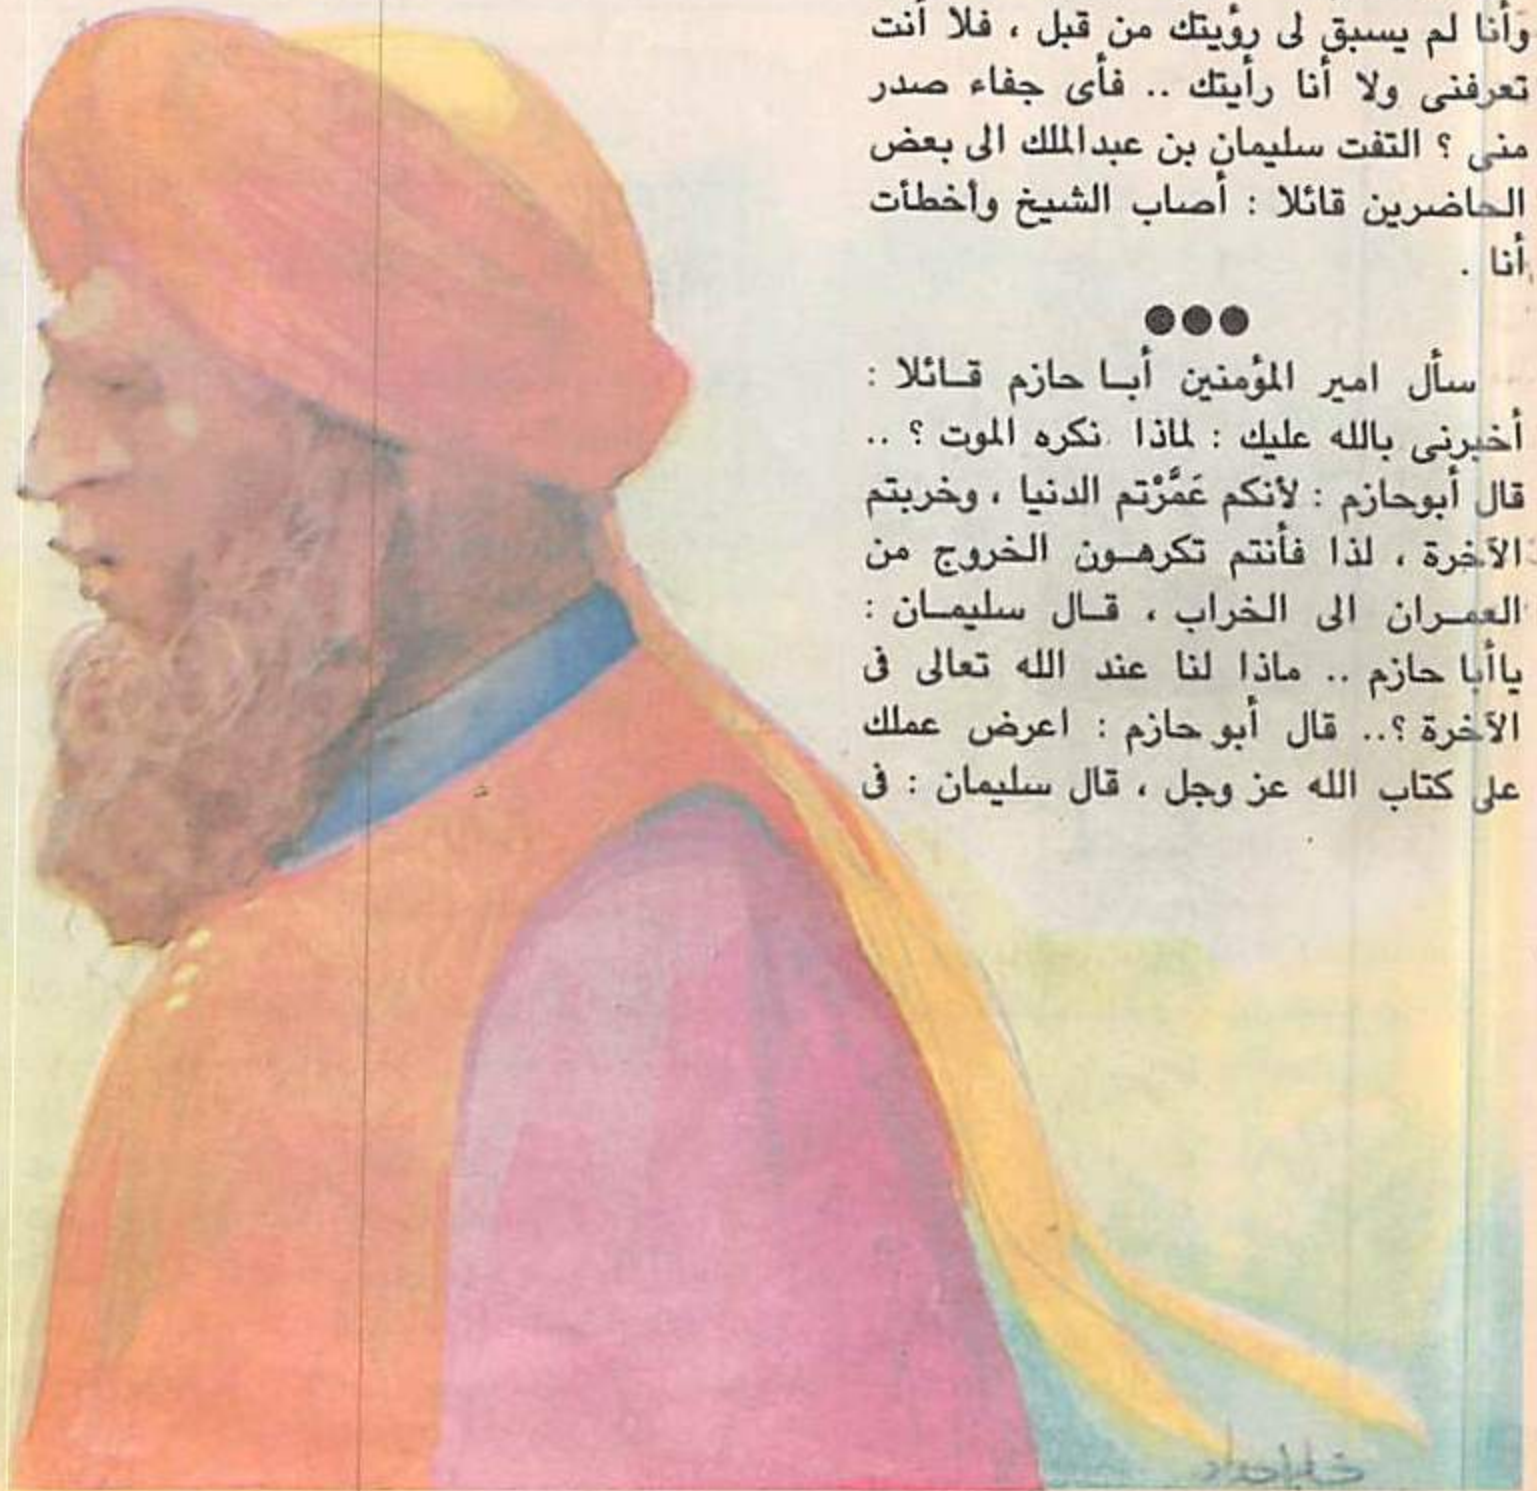 وَأنا لم يسبق لى رؤيتك من قبل ، فلا أنت
تعرفنى ولا أنا رأيتك .. فأى جفاء صدر
منى ؟ التفت سليمان بن عبدالملك الى بعض
الحاضرين قائلا : أصاب الشيخ وأخطأت
أنا .
●●●
سأل امير المؤمنين أبـا حازم قـائلا :
أخبرنى بالله عليك : لماذا نكره الموت ؟ ..
قال أبوحازم : لأنكم عَمَّرْتم الدنيا ، وخربتم
الآخرة ، لذا فأنتم تكرهـون الخروج من
العمـران الى الخراب ، قـال سليمـان :
ياأبا حازم .. ماذا لنا عند الله تعالى فى
الآخرة ؟.. قال أبو حازم : اعرض عملك
على كتاب الله عز وجل ، قال سليمان : فى